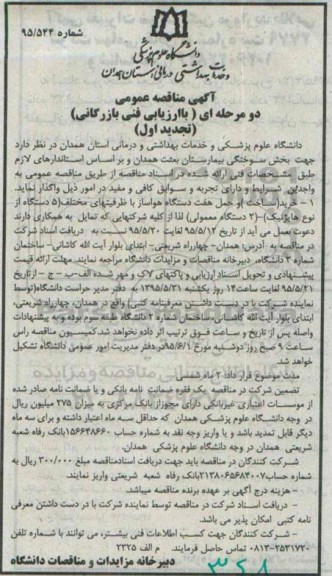 شماره ۹۵/۵۲۴
دانشگاه علوم پزشکی
و خدمات بهداشتی درمانی استان همدان
آگهی مناقصه عمومی
دو مرحله ای ( باارزیابی فنی بازرگانی)
(تجدید اول)
دانشگاه علوم پزشکی و خدمات بهداشتی و درمانی استان همدان در نظر دارد
جهت بخش سوختگی بیمارستان بعثت همدان و بر اساس استانداردهای لازم
طبق مشخصات فنی ارائه شده در اسناد مناقصه از طریق مناقصه عمومی به
واجدین شرایط و دارای تجربه و سوابق کافی و مفید در امور ذیل واگذار نماید.
۱ - خرید(ساخت )و حمل هفت دستگاه هواساز با ظرفیتهای مختلف(۵ دستگاه از
نوع هایژنیک)-(۲ دستگاه معمولی) لذا از کلیه شرکتهایی که تمایل به همکاری دارند
دعوت بعمل می آید از تاریخ ۹۵/۵/۱۲ لغایت ۹۵/۵/۲۰ نسبت به دریافت اسناد شرکت
در مناقصه به آدرس: همدان- چهارراه شریعتی- ابتدای بلوار آیت الله کاشانی- ساختمان
شماره ۲ دانشگاه، دبیرخانه مناقصات و مزایدات دانشگاه مراجعه نمایند. مهلت ارائه قیمت
پیشنهادی و تحویل اسناد ارزیابی و پاکتهای لاک و مهر شده الف-ب - ج - از تاریخ
۹۵/۵/۲۱ لغایت ساعت۱۴ روز یکشنبه ۱۳۹۵/۵/۳۱ به دفتر مدیر حراست دانشگاه(توسط
نماینده شرکت با در دست داشتن معرفینامه کتبی) واقع در همدان، چهارراه شریعتی،
ابتدای بلوار آیت الله کاشانی، ساختمان شماره ۲ دانشگاه طبقه سوم بوده و به پیشنهادات
واصله پس از تاریخ و ساعت فوق ترتیب اثر داده نخواهد شد.کمیسیون مناقصه راس
ساعت ۹ صبح روز دوشنبه مورخ ۹۵/۶/۱در دفتر مدیریت امور عمومی دانشگاه تشکیل
خواهد شد.
مدت موضوع قرار داد: ۲ ماه شمسی
تضمین شرکت در مناقصه یک فقره ضمانت نامه بانکی و یا ضمانت نامه صادر شده
از موسسات اعتباری غیربانکی دارای مجوزاز بانک مرکزی به میزان ۲۷۵ میلیون ریال
در وجه دانشگاه علوم پزشکی همدان که حداقل سه ماه اعتبار داشته و برای سه ماه
دیگر قابل تمدید باشد و یا واریز وجه نقد به شماره حساب ۱۵۶۶۴۸۶۶۰بانک رفاه شعبه
شریعتی همدان در وجه دانشگاه علوم پزشکی همدان.
شرکت کنندگان در مناقصه باید جهت دریافت اسنادمناقصه مبلغ ۳۰۰/۰۰۰ ریال به
شماره حساب۲۱۳۸۰۶۵۶۸۴۰۰۷بانک رفاه شعبه شریعتی واریز نمایند.
- هزینه درج آگهی بر عهده برنده مناقصه میباشد.
- دریافت اسناد شرکت در مناقصه توسط نماینده شرکت با در دست داشتن معرفی
نامه کتبی امکان پذیر می باشد.
- شرکت کنندگان جهت کسب اطلاعات فنی بیشتر، می توانند با شماره تلفن
۲۵۳۱۷۲۰-۰۸۱۳ تماس حاصل فرمایند. م الف ۲۳۲۵
دبیرخانه مزایدات و مناقصات دانشگاه